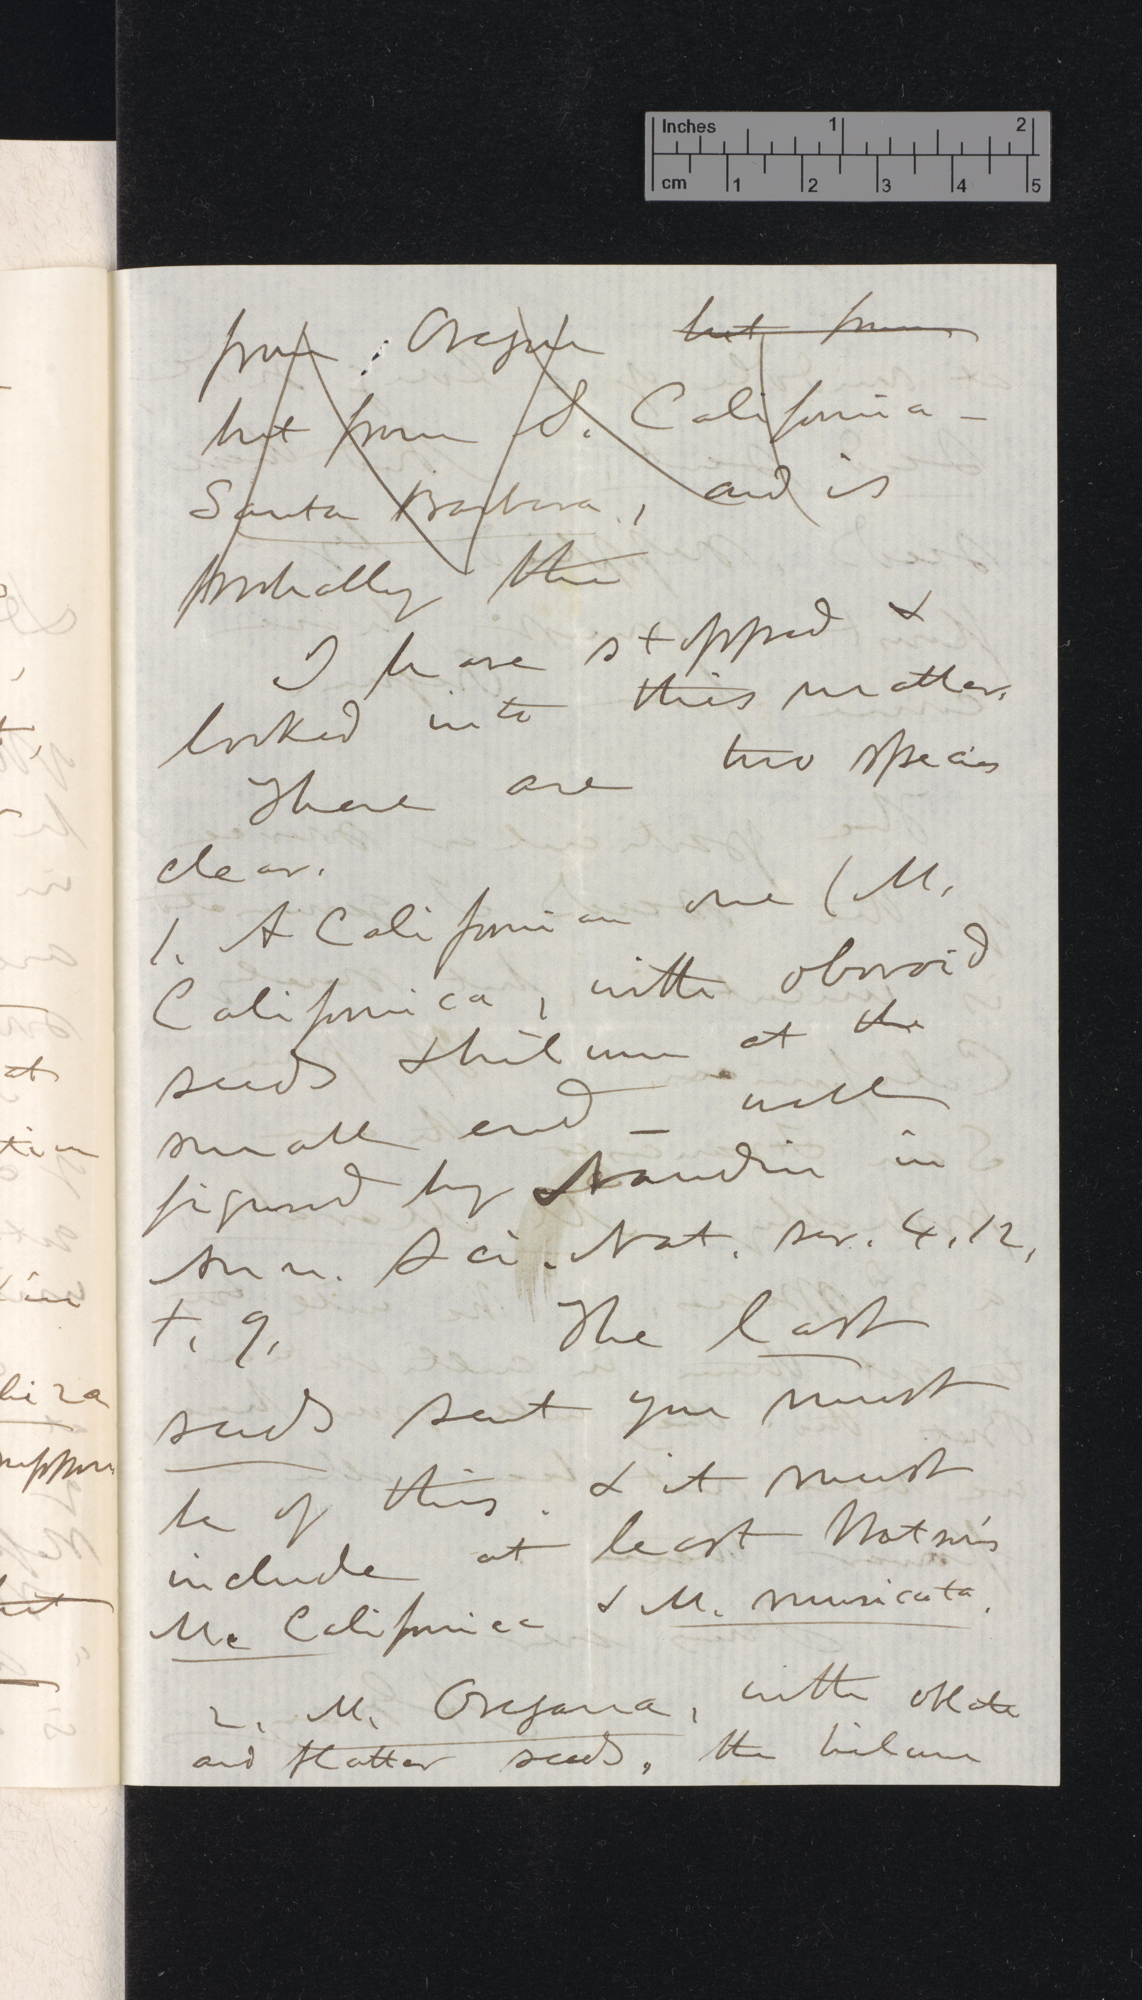 Inches 1 2
cm 1 2 3 4 5
from Oregon but from
but from S. California –
Santa Barbara, and is
probably the
I have stopped &
looked into this matter.
There are two species
clear.
1. A Californian one (M.
Californica, with obovoid
seeds & hilum at the
small end – well
figured by Naudin in
Ann. Sci. Nat. ser. 4, 12,
t. 9. The last
seeds sent you must
be of this. & it must
include at least Watson's
M. Californica & M. muricata.
2. M. Oregana, with oblate
and flatter seeds, the hilum